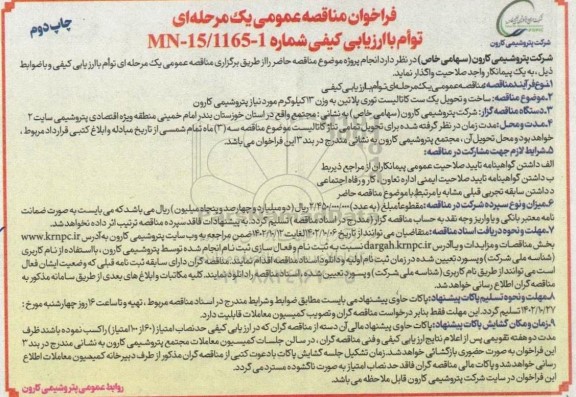 فراخوان مناقصه عمومی یک مرحله‌ای
توأم با ارزیابی کیفی شماره MN-15/1165-1
چاپ دوم
شرکت پتروشیمی کارون
شرکت پتروشیمی کارون (سهامی خاص) در نظر دارد انجام پروژه موضوع مناقصه حاضر را از طریق برگزاری مناقصه عمومی یک مرحله ای توأم با ارزیابی کیفی و با ضوابط
ذیل ، به یک پیمانکار واجد صلاحیت واگذار نماید.
۱.نوع فرآیند مناقصه: مناقصه عمومی یک مرحله‌ای توأم با ارزیابی کیفی
۲.موضوع مناقصه: ساخت و تحویل یک ست کاتالیست توری پلاتین به وزن ۱۳ کیلوگرم مورد نیاز پتروشیمی کارون
۳.دستگاه مناقصه گزار: شرکت پتروشیمی کارون (سهامی خاص) به نشانی : مجتمع واقع در استان خوزستان بندر امام خمینی منطقه ویژه اقتصادی پتروشیمی سایت ۲
۴.مدت و محل: مدت زمان در نظر گرفته شده برای تحویل کاتالیست موضوع مناقصه سه (۳) ماه تمام شمسی از تاریخ مبادله و ابلاغ کتبی قرارداد مربوط ،
خواهد بود و محل تحویل آن، مجتمع پتروشیمی کارون به نشانی مندرج در بند ۳ این فراخوان می باشد.
۵.شرایط لازم جهت مشارکت در مناقصه:
الف داشتن گواهینامه تایید صلاحیت عمومی پیمانکاران از مراجع ذیربط
ب داشتن گواهینامه تایید صلاحیت ایمنی اداره تعاون ، کار و رفاه اجتماعی
د داشتن سابقه تجربی قبلی مشابه یا مرتبط با موضوع مناقصه حاضر
۶.میزان و نوع سپرده شرکت در مناقصه: مقطوعا مبلغ (به عدد) ۲/۴۵۰/۰۰۰/۰۰۰ ریال (دو میلیارد و چهارصد و پنجاه میلیون) ریال می باشد که می بایست به صورت ضمانت
نامه معتبر بانکی و یا واریز وجه نقد به حساب مناقصه گزار (مندرج در اسناد مناقصه) تسلیم گردد. به پیشنهادات فاقد سپرده مناقصه ترتیب اثر داده نخواهد شد.
۷.مهلت و نحوه دریافت اسناد مناقصه: متقاضیان می توانند از تاریخ ۱۴۰۲/۱۰/۰۶ لغایت ۱۴۰۲/۱۰/۱۳ ضمن مراجعه به وب سایت پتروشیمی کارون به آدرس www.krnpc.ir
بخش مناقصات و مزایدات و یا آدرس dargah.krnpc.ir نسبت به ثبت نام و فعال سازی ثبت نام انجام شده توسط پتروشیمی کارون ، با استفاده از نام کاربری
(شناسه ملی شرکت) و پسورد تعیین شده در زمان ثبت نام اولیه و دانلود اسناد مناقصه اقدام نمایند. مناقصه گران دارای سابقه ثبت نامه قبلی که وضعیت ایشان فعال
است می توانند از طریق نام کاربری (شناسه ملی شرکت) و پسورد تعیین شده اسناد مناقصه را دانلود نمایند. کلیه مکاتبات و ابلاغ های بعدی از طریق سامانه مذکور به
مناقصه گران اطلاع رسانی خواهد شد.
۸.مهلت و نحوه تسلیم پاکات پیشنهاد: پاکات حاوی پیشنهاد می بایست مطابق ضوابط و شرایط مندرج در اسناد مناقصه مربوط ، تهیه و تا ساعت ۱۶ روز چهارشنبه مورخ :
۱۴۰۲/۱۰/۲۷ تسلیم گردد. این مهلت فقط بنابر درخواست مناقصه گران و تصویب کمیسیون معاملات قابلیت دارد.
۹.زمان و مکان گشایش پاکات پیشنهاد: پاکات حاوی پیشنهاد مالی آن دسته از مناقصه گران که در ارزیابی کیفی حد نصاب امتیاز (۶۰ از ۱۰۰ امتیاز) را کسب نموده باشند ظرف
مدت دو هفته تقویمی پس از اعلام نتایج ارزیابی کیفی و فنی مناقصه گران ، در سالن جلسات کمیسیون معاملات مجتمع پتروشیمی کارون به نشانی مندرج در بند ۳
این فراخوان به صورت حضوری بازگشائی خواهد شد. زمان تشکیل جلسه گشایش پاکات با دعوت کتبی از مناقصه گران مذکور از طرف دبیرخانه کمیسیون معاملات اطلاع
رسانی خواهد شد و پاکات مالی مناقصه گران فاقد حد نصاب امتیاز به صورت ناگشوده مسترد می گردد.
این فراخوان در سایت شرکت پتروشیمی کارون قابل ملاحظه می باشد.
روابط عمومی پتروشیمی کارون